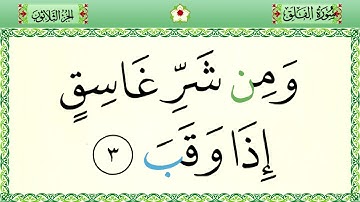 سُورَةُ الفَلَق
الجُزءُ الثَّلَاثُونَ
وَمِن شَرِّ غَاسِقٍ
إِذَا وَقَبَ ٣